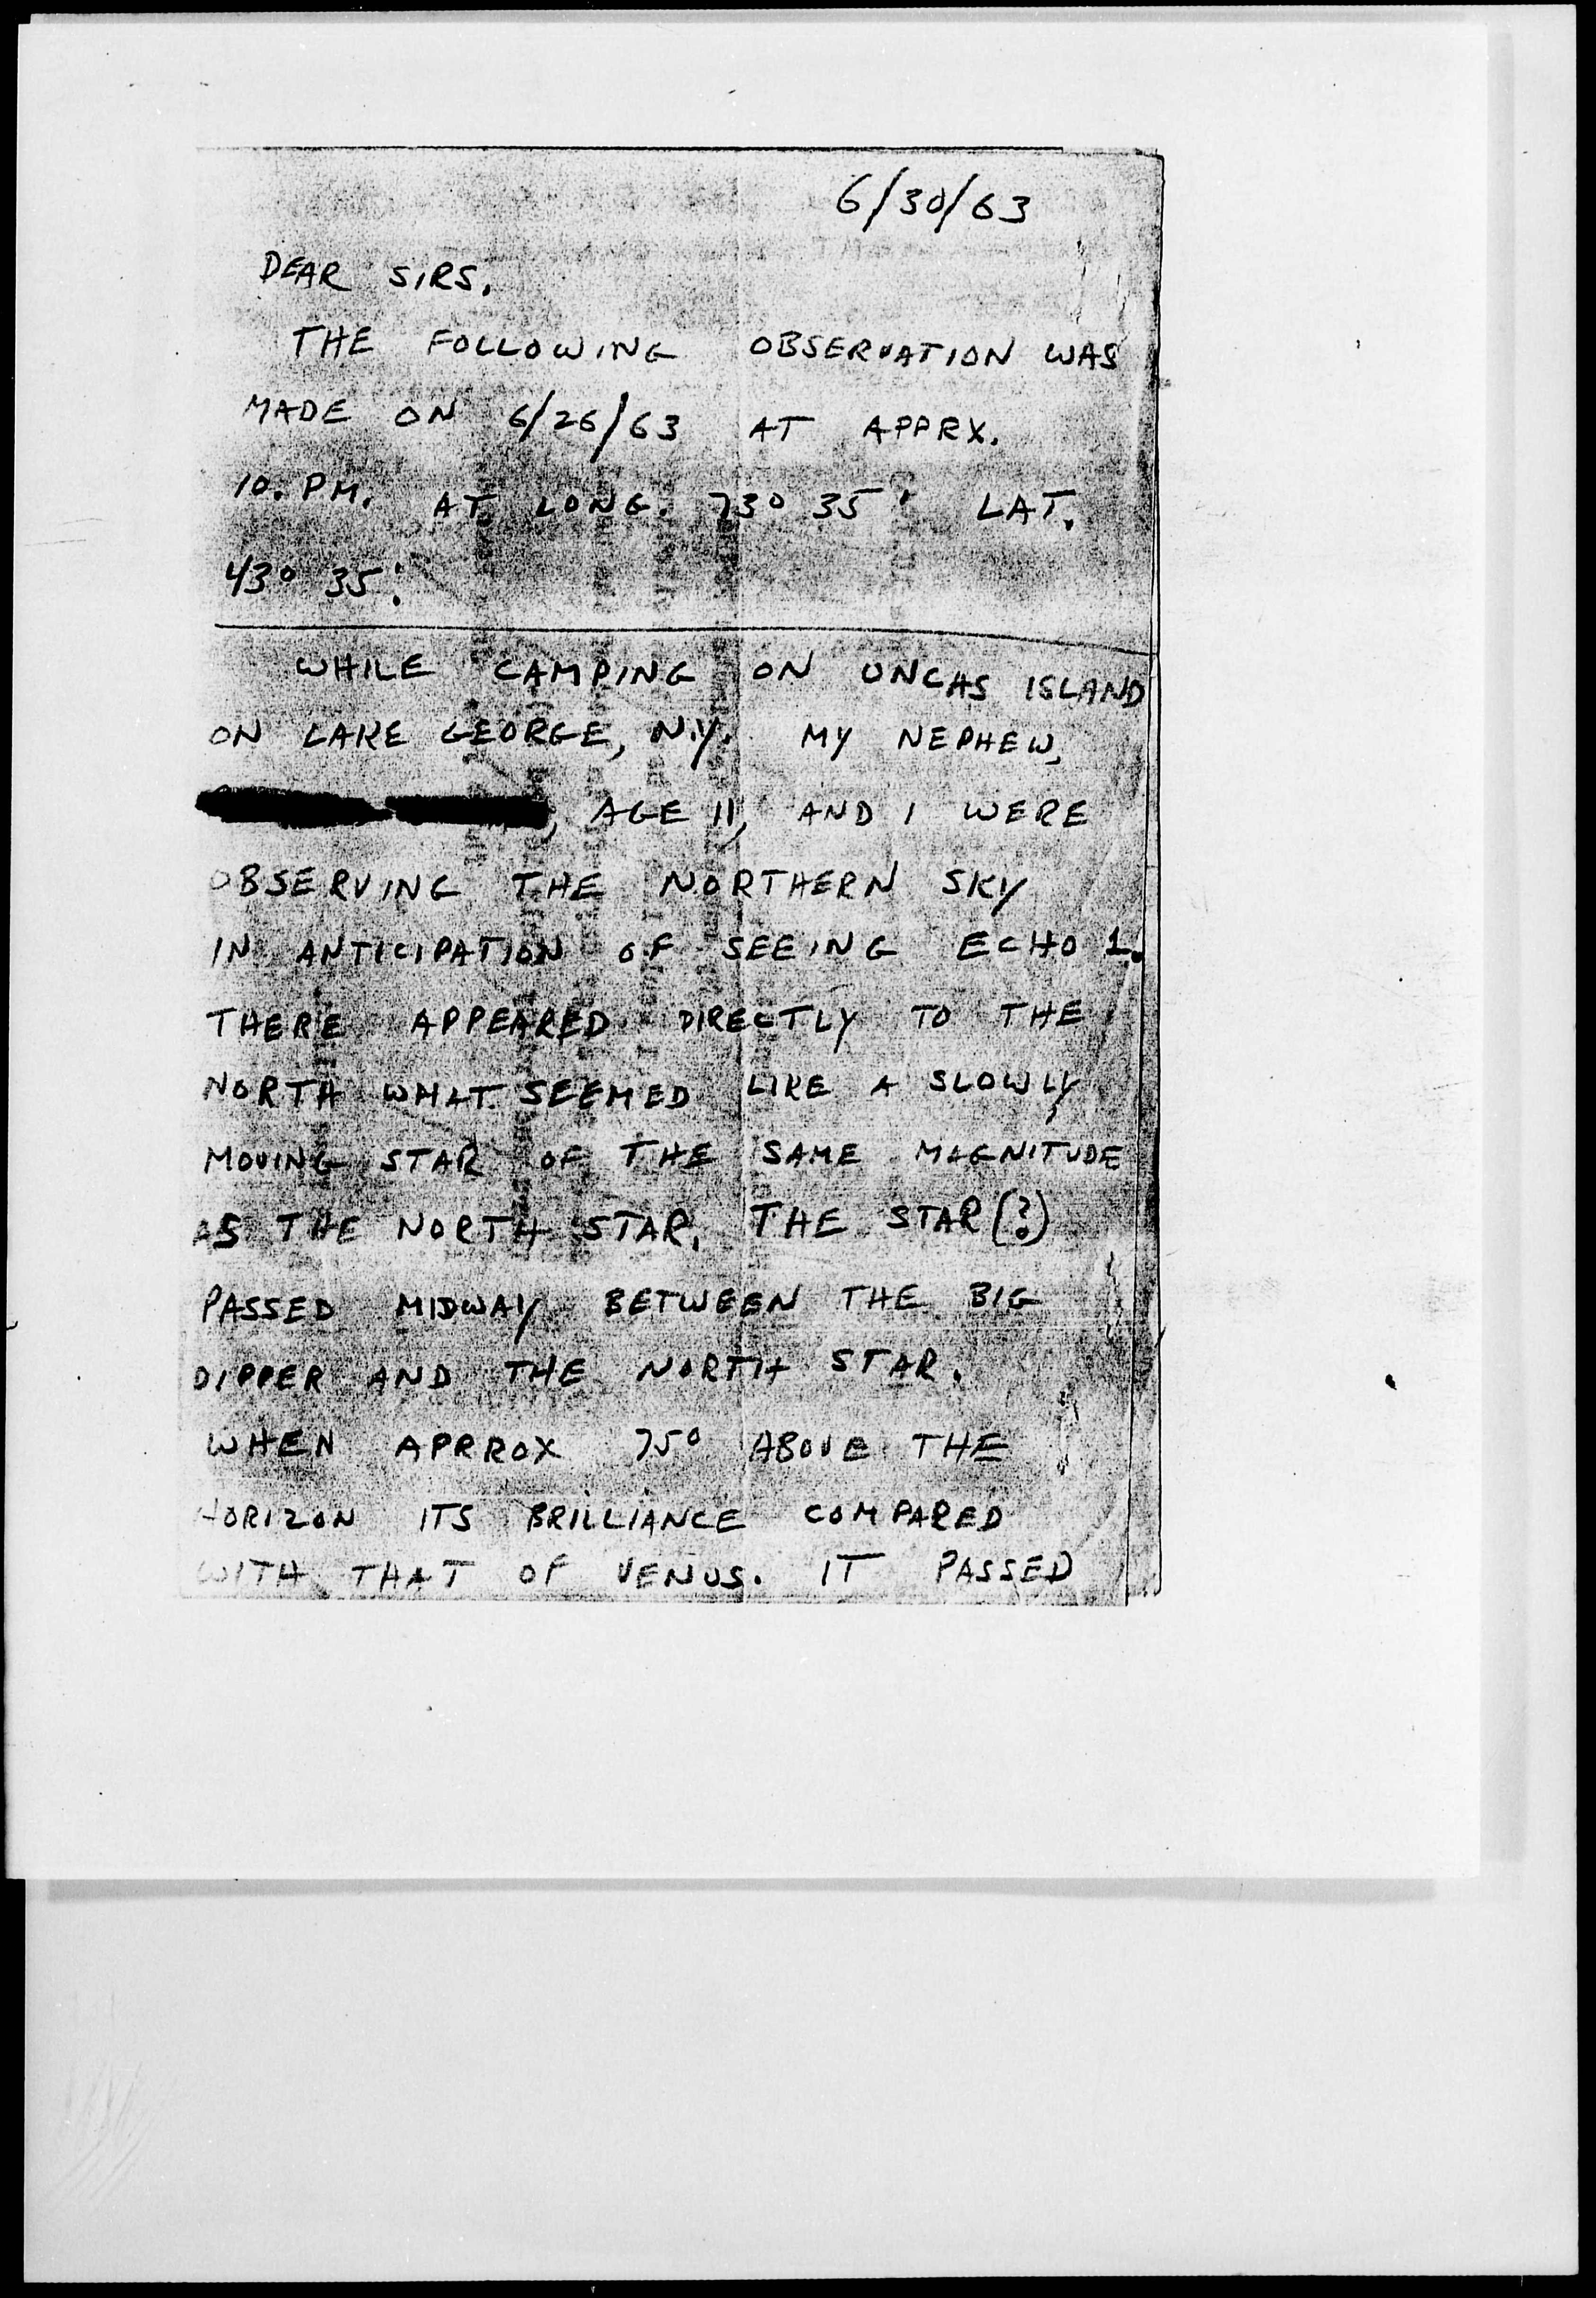 6/30/63
DEAR SIRS,
THE FOLLOWING OBSERVATION WAS
MADE ON 6/26/63 AT APPRX.
10. PM. AT LONG. 73° 35' LAT.
43° 35'.
WHILE CAMPING ON UNCAS ISLAND
ON LAKE GEORGE, N.Y. MY NEPHEW,
, AGE 11, AND I WERE
OBSERVING THE NORTHERN SKY
IN ANTICIPATION OF SEEING ECHO 1.
THERE APPEARED DIRECTLY TO THE
NORTH WHAT SEEMED LIKE A SLOWLY
MOVING STAR OF THE SAME MAGNITUDE
AS THE NORTH STAR. THE STAR(?)
PASSED MIDWAY BETWEEN THE BIG
DIPPER AND THE NORTH STAR.
WHEN APRROX 75° ABOVE THE
HORIZON ITS BRILLIANCE COMPARED
WITH THAT OF VENUS. IT PASSED